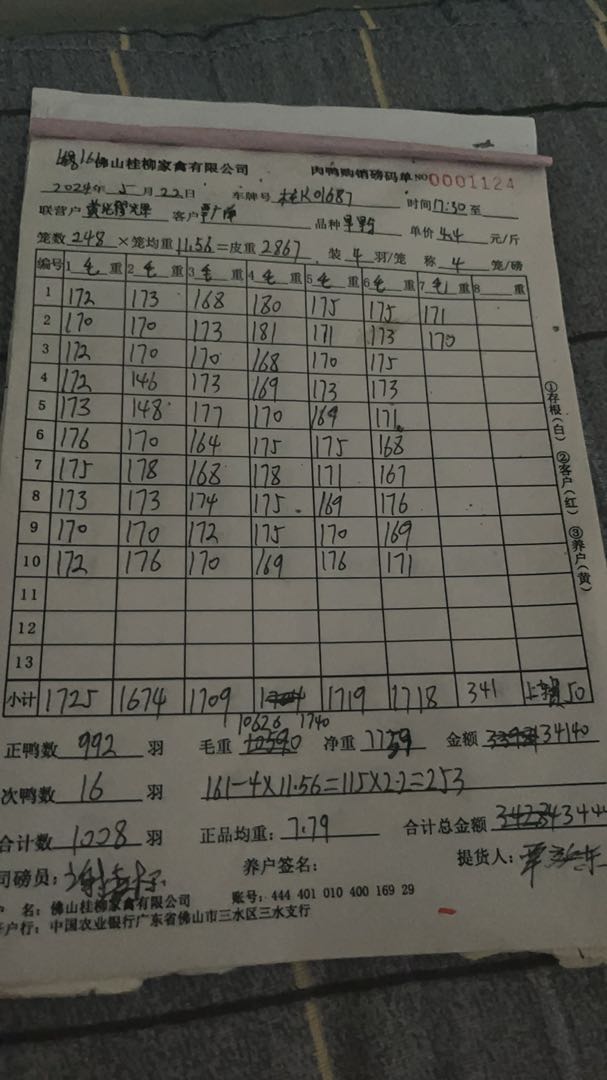 佛山桂柳家禽有限公司 肉鸭购销磅码单 NO 0001124
2024年 5月 22日 车牌号 K01687 时间 17:30 至
联营户 客户 品种 单价 4.4 元/斤
笼数 248 ×笼均重 11.56 =皮重 2867 装 4 羽/笼 称 4 笼/磅
编号 1 毛 重 2 毛 重 3 毛 重 4 毛 重 5 毛 重 6 毛 重 7 毛 重 8 重
1 172 173 168 180 175 175 171
2 170 170 173 181 171 173 170
3 172 170 170 168 170 175
4 172 146 173 169 173 173
5 173 148 177 170 169 171
6 176 170 164 175 175 168
7 175 178 168 178 171 167
8 173 173 174 175 169 176
9 170 170 172 175 170 169
10 172 176 170 169 176 171
11
12
13
小计 1725 1674 1709 1719 1718 341 50
10626 1740
正鸭数 992 羽 毛重 净重 7759 金额 34140
次鸭数 16 羽 161-4×11.56=115×2.2=253
合计数 1008 羽 正品均重: 7.79 合计总金额
司磅员: 养户签名: 提货人:
户 名: 佛山桂柳家禽有限公司 账号: 444 401 010 400 169 29
开户行: 中国农业银行广东省佛山市三水区三水支行
①存根(白) ②客户(红) ③养户(黄)